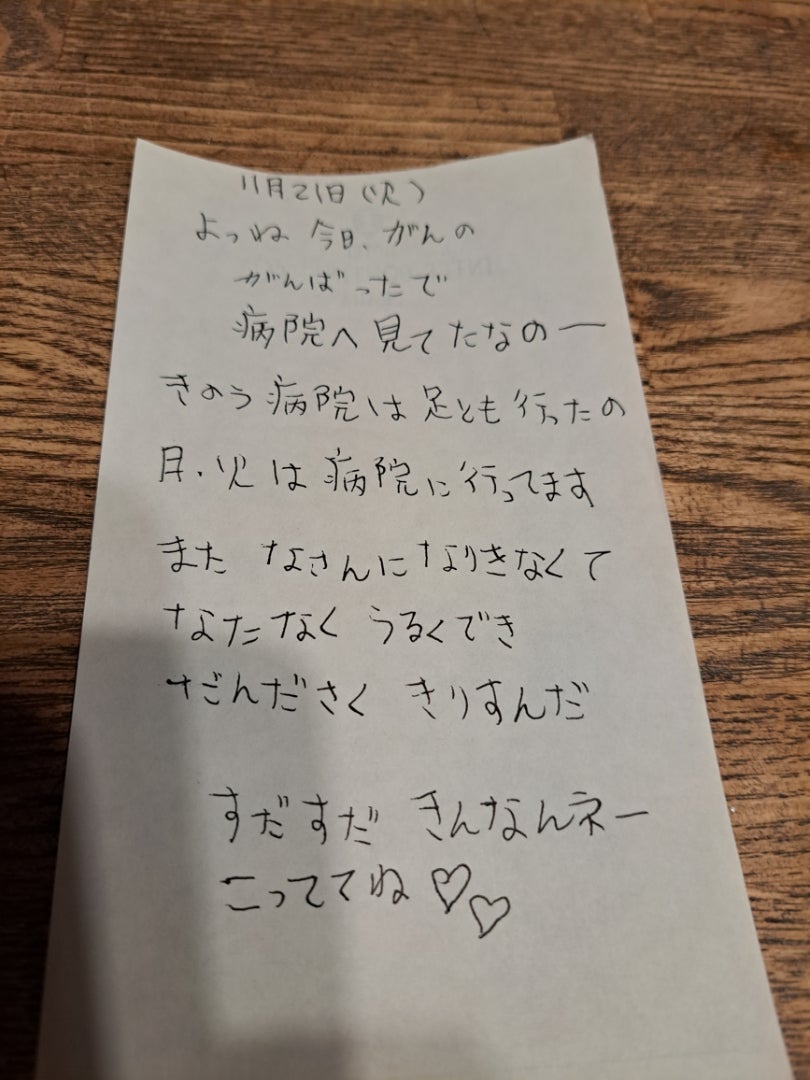 11月21日(火)
よっね 今日、がんの
がんばったで
病院へ見てたなのー
きのう病院は足とも行ったの
月、火は病院に行ってます
また なさんになりきなくて
なたなく うるくでき
だんださく きりすんだ
すだすだ きんなんネー
こっててね♡♡